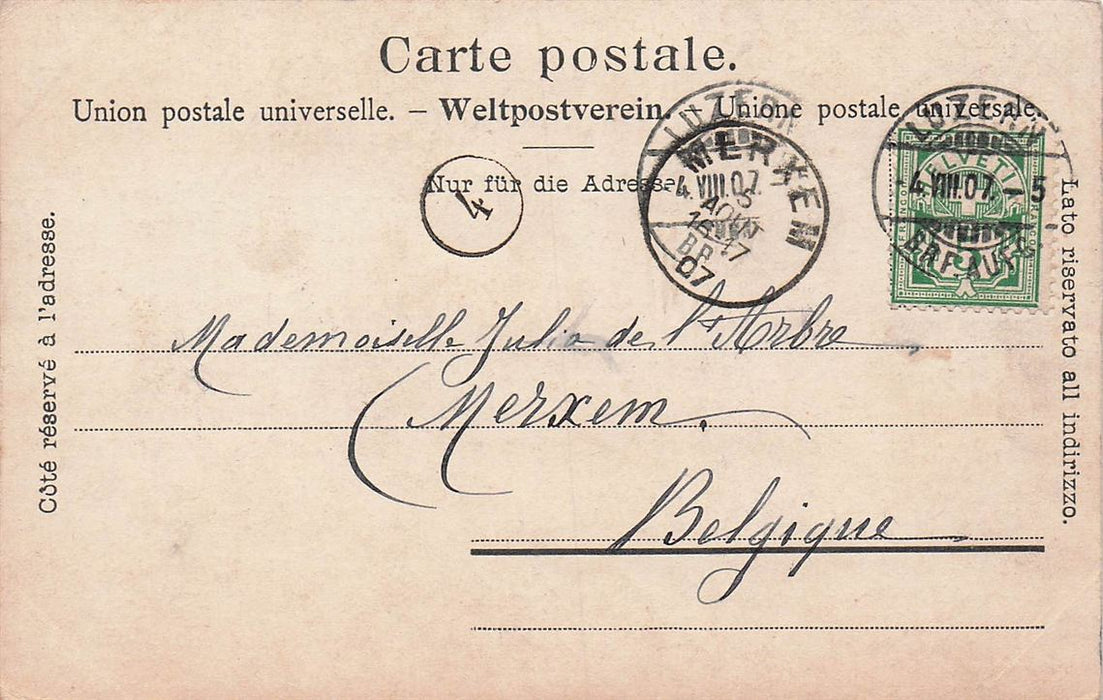 Carte postale.
Union postale universelle. – Weltpostverein. – Unione postale universale.
Nur für die Adresse
4
LUZERN
4.VIII.07.
MERXEM
5
AOUT
16-17
07
LUZERN
4.VIII.07.-5
BRF.AUFG
HELVETIA
Côté réservé à l'adresse.
Lato riservato all indirizzo.
Mademoiselle Julia de l'Arbre
Merxem.
Belgique